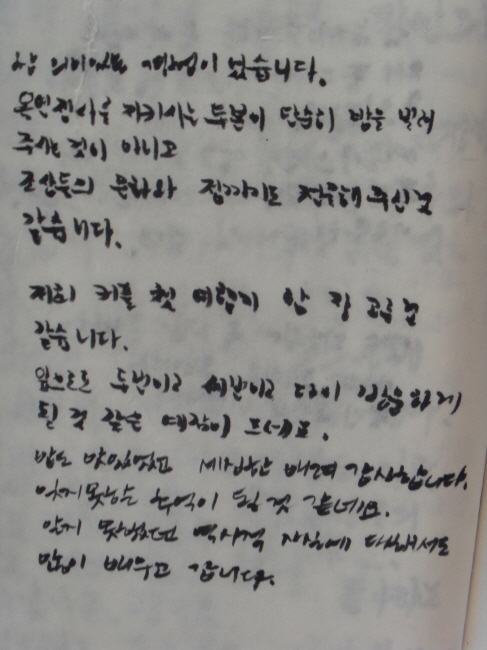 참 의미있는 여정이 었습니다.
옥인정사를 지키시는 두분이 단순히 방을 빌려
주시는 것이 아니고
조상들의 문화와 정까지도 전수해 주신것
같습니다.
저희 커플 첫 여행지 안 잘 고른
같습니다.
앞으로도 두번이고 세번이고 다시 방문하게
될 것 같은 예감이 드네요.
밥도 맛있었고 세심한 배려 감사합니다.
잊지못할 추억이 될 것 같네요.
알지 못했던 역사적 사실에 대해서도
많이 배우고 갑니다.